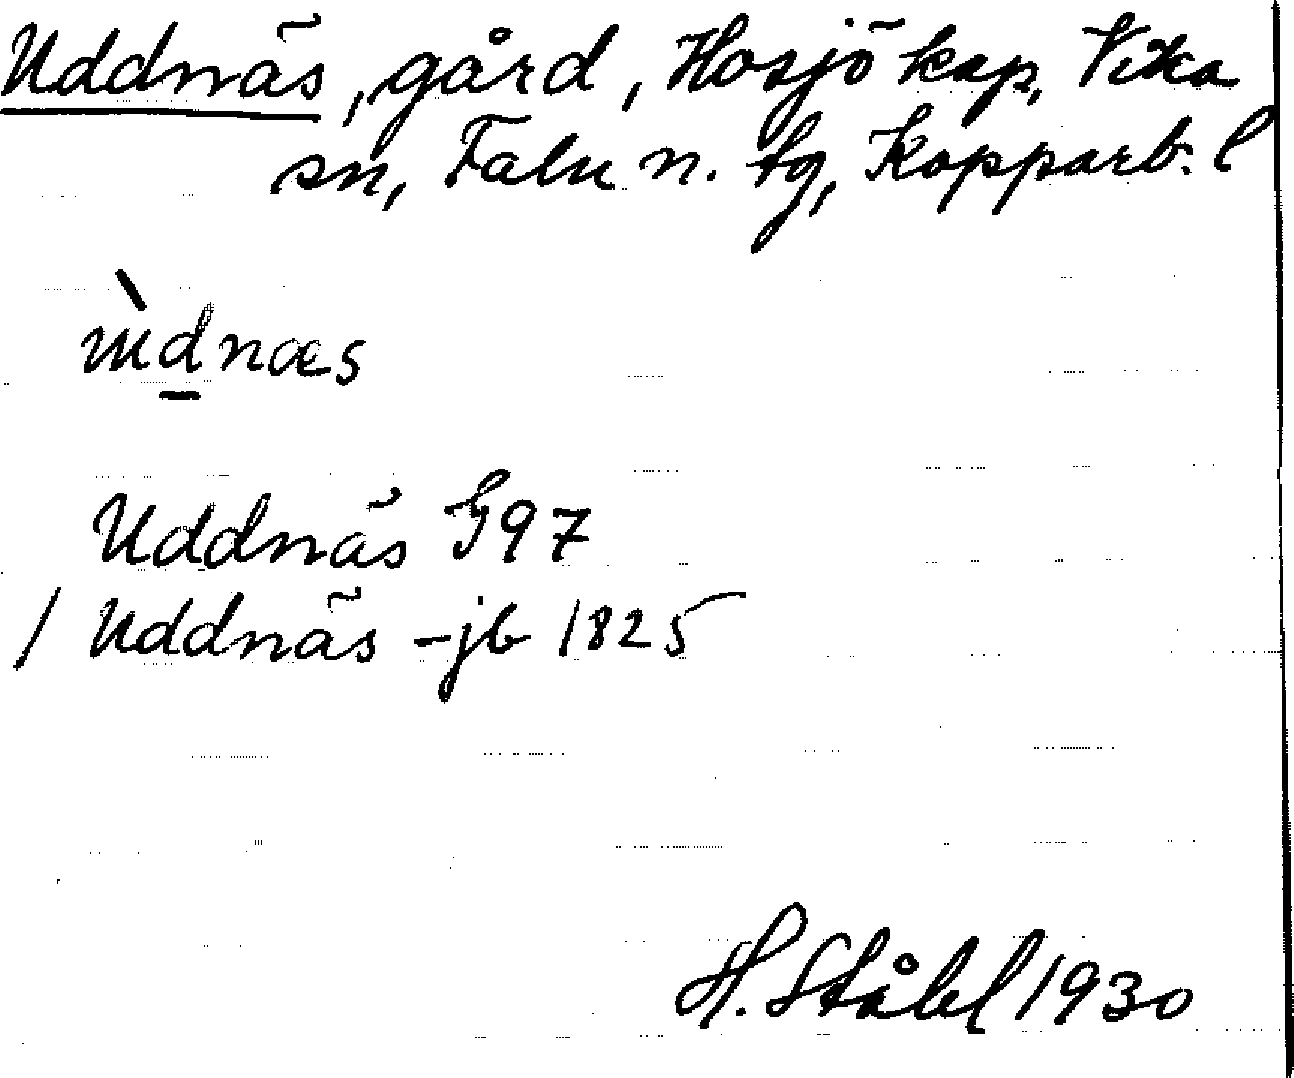 Uddnäs, gård, Hosjö kap, Vika
sn, Falu n. tg, Kopparb. l
ùdnæs
Uddnäs G97
/ Uddnäs - jb 1825
H. Ståhl 1930